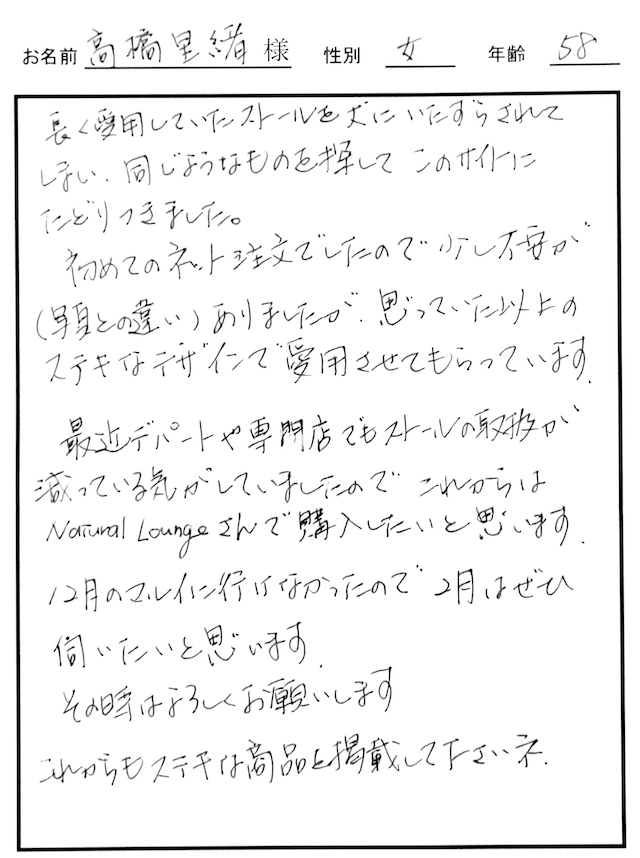 お名前 高橋里緒 様 性別 女 年齢 58
長く愛用していたストールを犬にいたずらされて
しまい、同じようなものを探して このサイトに
たどりつきました。
初めてのネット注文でしたので 少し不安が
(写真との違い)ありましたが、思っていた以上の
ステキなデザインで愛用させてもらっています.
最近デパートや専門店でもストールの取扱が
減っている気がしていましたので これからは
Natural Loungeさんで購入したいと思います.
12月のマルイに行けなかったので 2月はぜひ
伺いたいと思います.
その時はよろしくお願いします
これからもステキな商品を掲載して下さいネ.